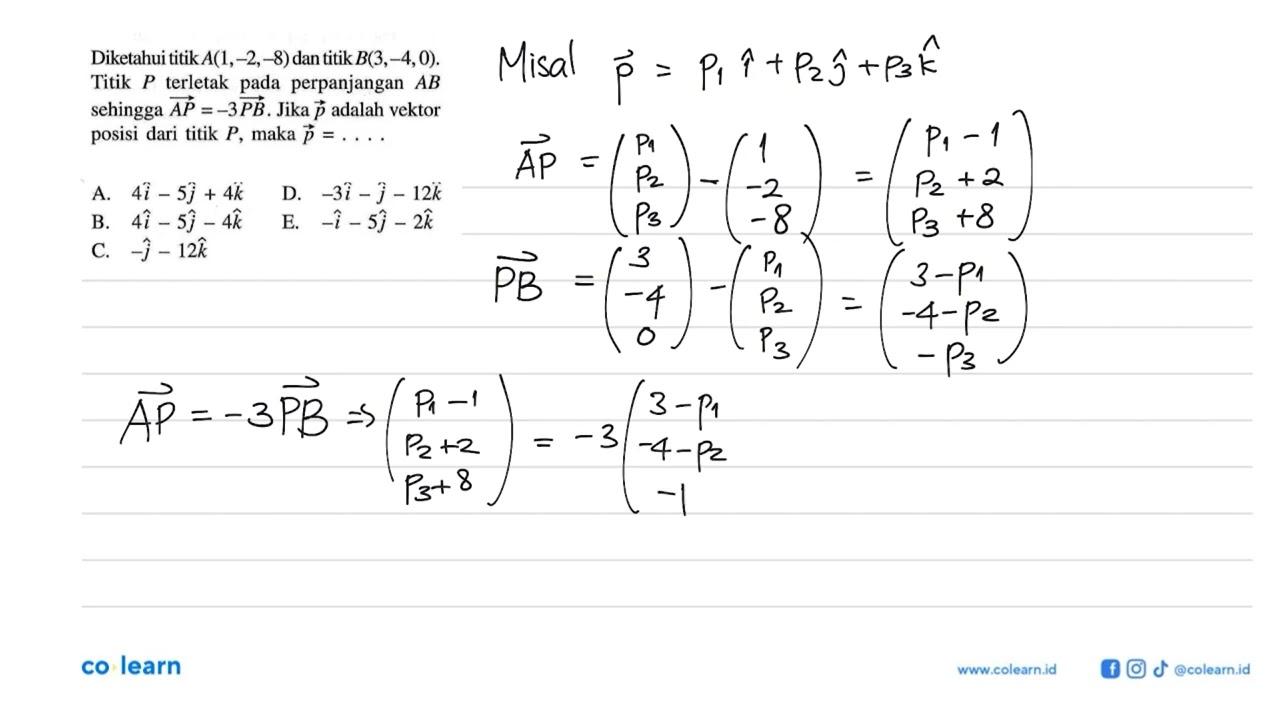 Diketahui titik A(1,–2,–8) dan titik B(3,–4,0).
Titik P terletak pada perpanjangan AB
sehingga $\overrightarrow{AP}$ = –3$\overrightarrow{PB}$. Jika $\vec{p}$ adalah vektor
posisi dari titik P, maka $\vec{p}$ = . . . .
A. 4$\hat{i}$ – 5$\hat{j}$ + 4$\hat{k}$ D. –3$\hat{i}$ – $\hat{j}$ – 12$\hat{k}$
B. 4$\hat{i}$ – 5$\hat{j}$ – 4$\hat{k}$ E. –$\hat{i}$ – 5$\hat{j}$ – 2$\hat{k}$
C. –$\hat{j}$ – 12$\hat{k}$
Misal $\vec{p}$ = p₁ $\hat{i}$ + p₂ $\hat{j}$ + p₃ $\hat{k}$
$\overrightarrow{AP} = \begin{pmatrix} p_1 \\ p_2 \\ p_3 \end{pmatrix} - \begin{pmatrix} 1 \\ -2 \\ -8 \end{pmatrix} = \begin{pmatrix} p_1 - 1 \\ p_2 + 2 \\ p_3 + 8 \end{pmatrix}$
$\overrightarrow{PB} = \begin{pmatrix} 3 \\ -4 \\ 0 \end{pmatrix} - \begin{pmatrix} p_1 \\ p_2 \\ p_3 \end{pmatrix} = \begin{pmatrix} 3 - p_1 \\ -4 - p_2 \\ - p_3 \end{pmatrix}$
$\overrightarrow{AP} = -3\overrightarrow{PB} \Rightarrow \begin{pmatrix} p_1 - 1 \\ p_2 + 2 \\ p_3 + 8 \end{pmatrix} = -3 \left( \begin{matrix} 3 - p_1 \\ -4 - p_2 \\ -1 \end{matrix} \right.$
co learn
www.colearn.id
@colearn.id